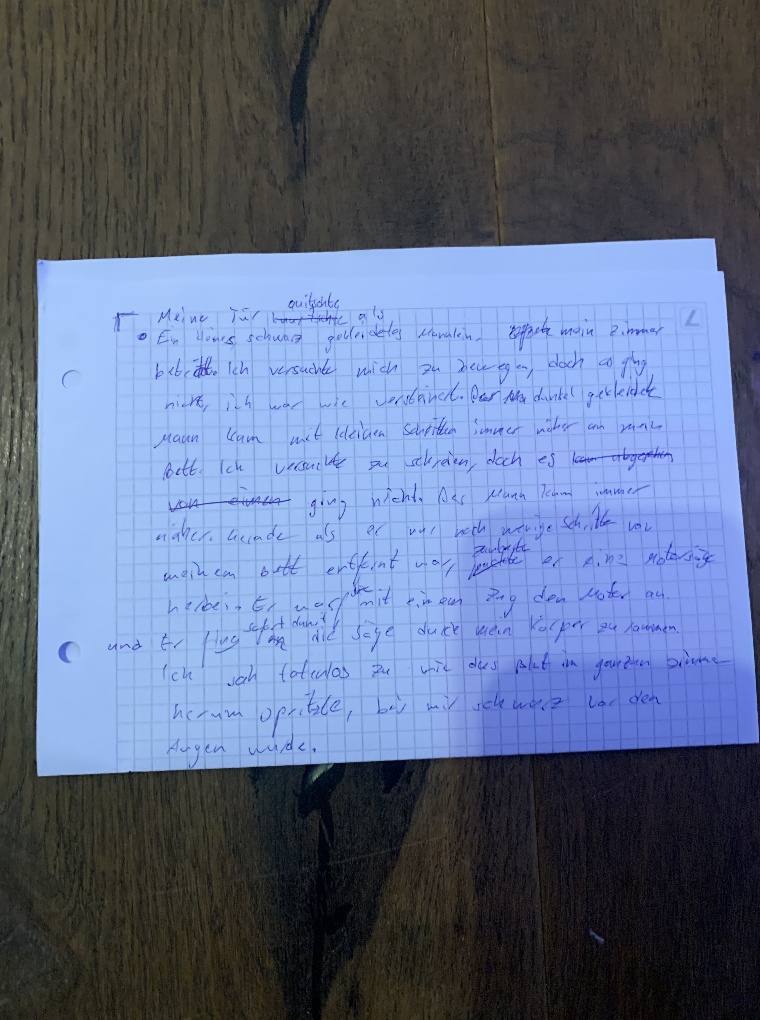 Meine Tür quitschte als
Ein kleines schwarz gekleidetes Mänlein, mein Zimmer
betritt. Ich versuchte mich zu bewegen, doch es ging
nicht, ich war wie versteinert. Der dunkel gekleidete
Mann kam mit kleinen Schritten immer näher an mein
Bett. Ich versuchte zu schreien, doch es kam abgesehen
von einem ging nicht. Der Mann kam immer
näher. Gerade als er nur noch wenige Schritte von
meinem Bett entfernt war, zauberte er eine Motorsäge
herbei. Er warf mit einem Zug den Motor an.
und Er fing sofort damit an die Säge durch mein Körper zu rammen.
Ich sah tatenlos zu wie das Blut im ganzen Zimmer
herum spritzte, bis mir schwarz vor den
Augen wurde.